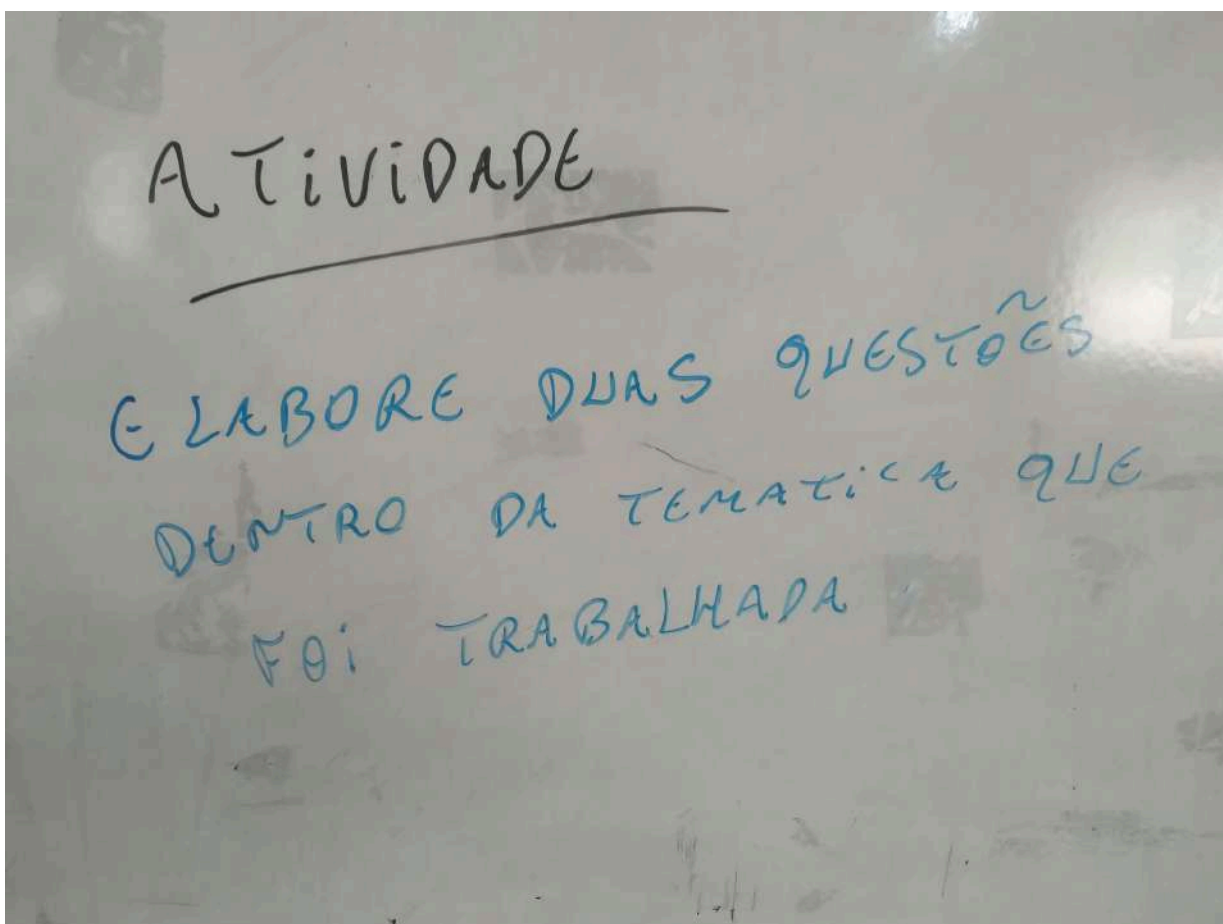 ATiViDADE
ELABORE DUAS QUESTÕES
DENTRO DA TEMATiCA QUE
FOi TRABALHADA